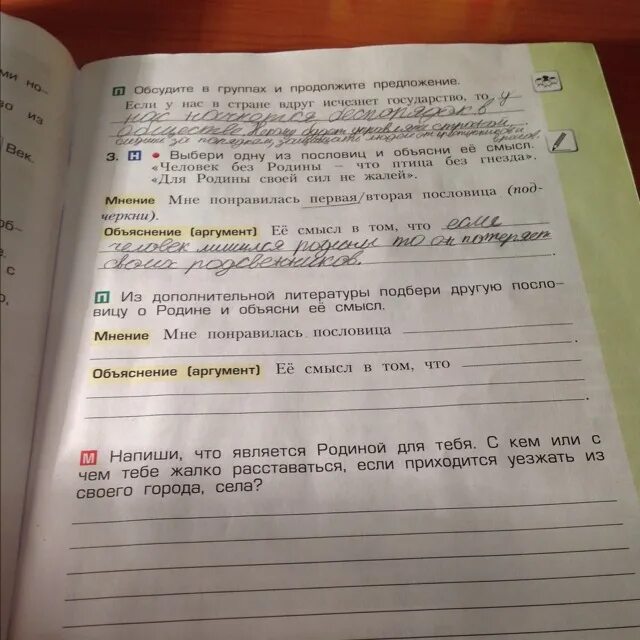 ми но-
во из
Век.
об-
с
П Обсудите в группах и продолжите предложение.
Если у нас в стране вдруг исчезнет государство, то у
нас начнётся беспорядок в
обществе. Некому будет управлять страной,
за порядком, защищать людей от преступников и
врагов.
3. Н • Выбери одну из пословиц и объясни её смысл.
«Человек без Родины – что птица без гнезда».
«Для Родины своей сил не жалей».
Мнение Мне понравилась первая/вторая пословица (под-
черкни).
Объяснение (аргумент) Её смысл в том, что если
человек лишился родины то он потеряет
своих родсвенников.
П Из дополнительной литературы подбери другую посло-
вицу о Родине и объясни её смысл.
Мнение Мне понравилась пословица
Объяснение (аргумент) Её смысл в том, что
М Напиши, что является Родиной для тебя. С кем или с
чем тебе жалко расставаться, если приходится уезжать из
своего города, села?